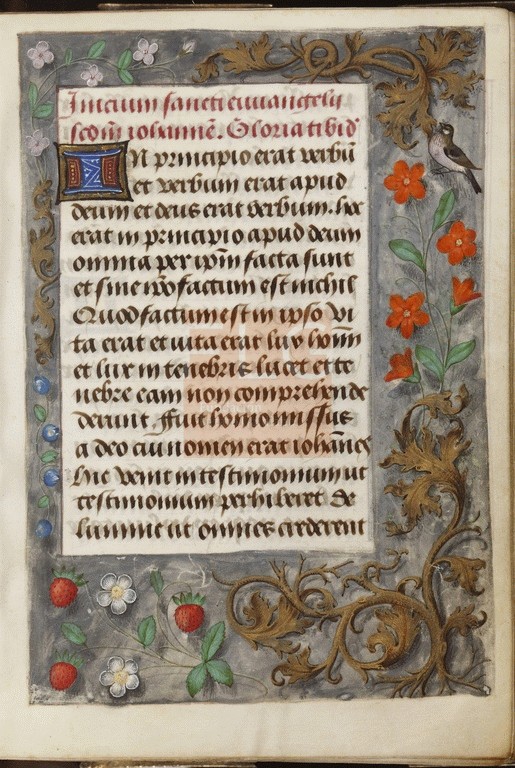 Inicium sancti euuangelii
scdm iohannē. Gloria tibi dn̄
IN principio erat verbū
et verbum erat apud
deum et deus erat verbum. hoc
erat in principio apud deum
omnia per ip̄m facta sunt
et sine ip̄o factum est nichil
Quod factum est in ipso vi
ta erat et vita erat lux homī
et lux in tenebris lucet et te
nebre eam non comprehende
derunt. Fuit homo missus
a deo cui nomen erat iohannes
hic venit in testimonium ut
testimonium perhiberet de
lumine ut omnes crederent